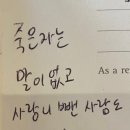 죽은자는
말이 없고
As a re
사랑니 뺀 사람도